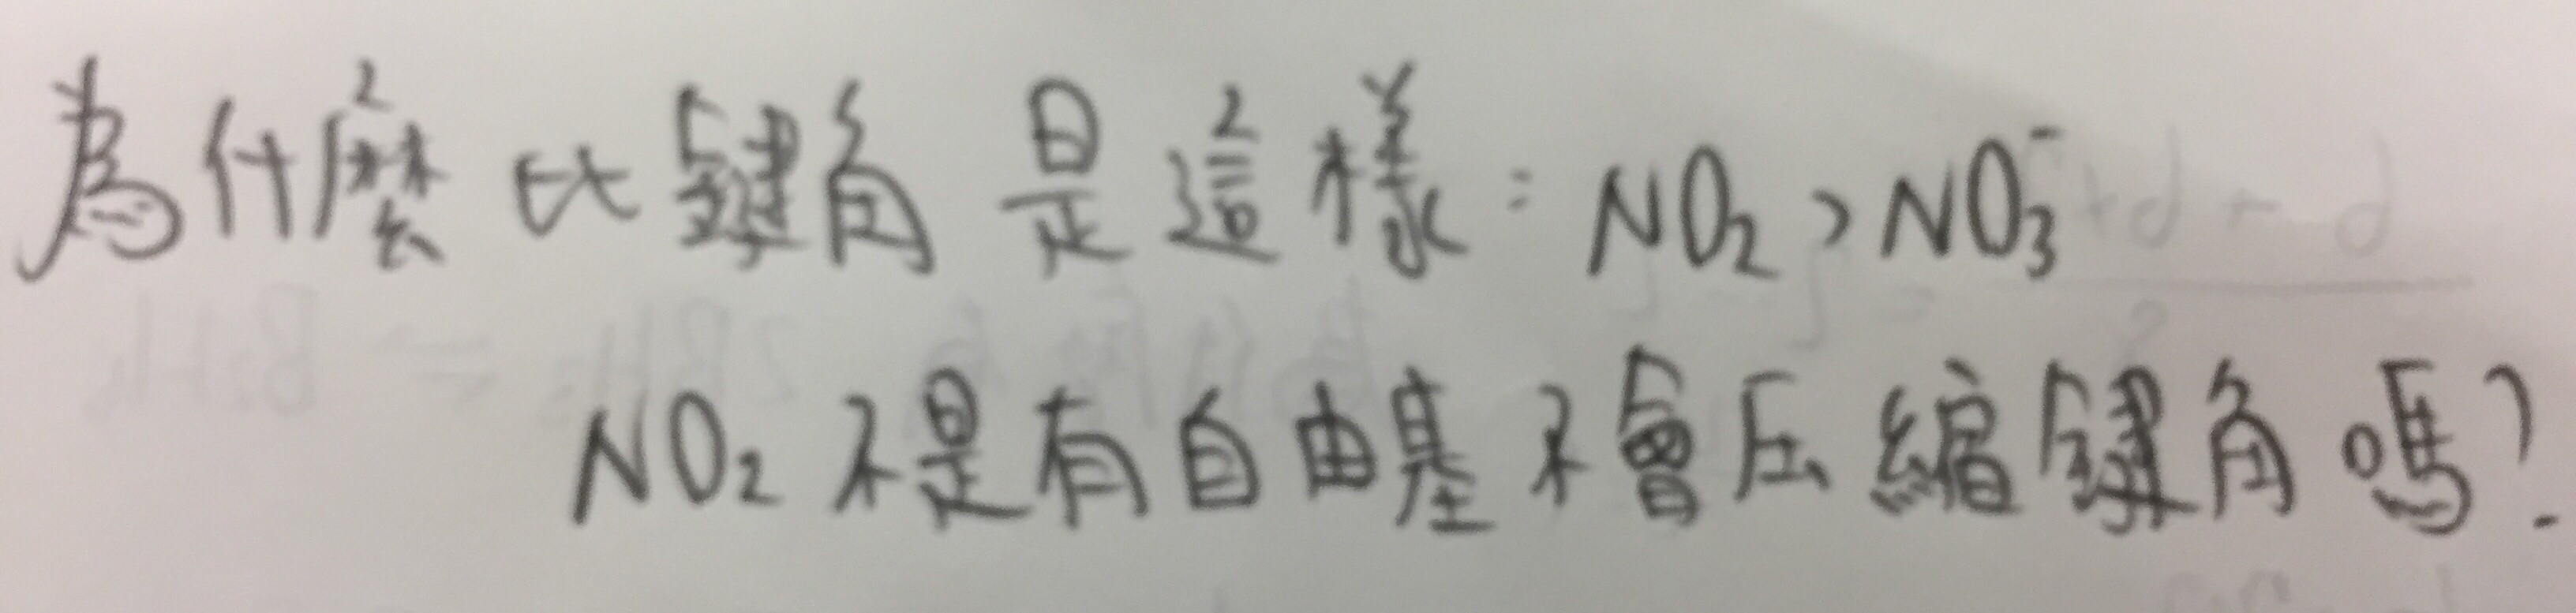 為什麼比鍵角是這樣：NO₂ > NO₃⁻
NO₂不是有自由基不會压縮鍵角嗎?